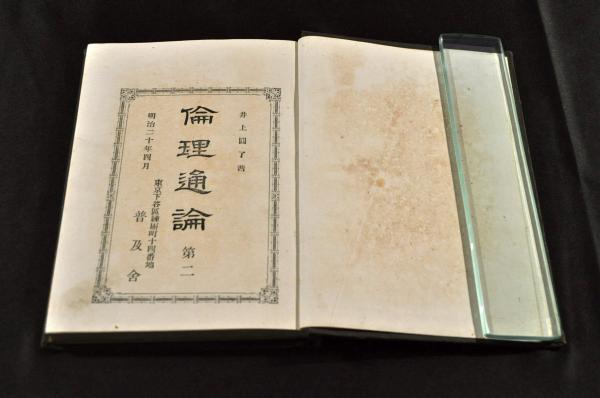 井上圓了著
倫理通論 第二
明治二十年四月
東京下谷區練塀町十四番地
普及舍